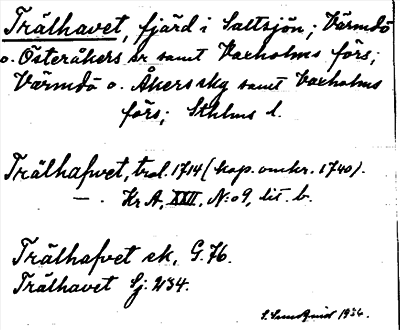 Trälhavet, fjärd i Saltsjön; Värmdö
o. Österåkers sr samt Vaxholms förs;
Värmdö o. Åkers skg samt Vaxholms
förs; Sthlms l.
Trälhafvet, trol. 1714 (kop. omkr. 1740).
— . Kr A, XXII, N:o 9, lit. b.
Trälhafvet ek, G. 76.
Trälhavet Sj. 2134.
S. Lundquist 1936.